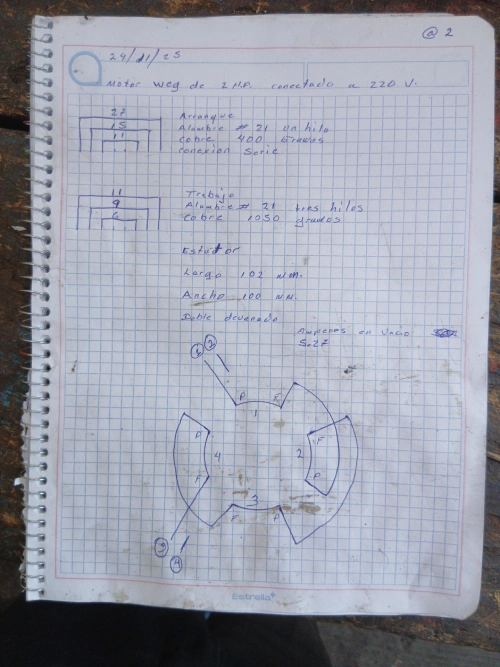 @ 2
24/11/25
Motor weg de 2 H.P. conectado a 220 V.
27
15
11
Arranque
Alambre # 21 un hilo
cobre 400 Gramos
conexion Serie
11
9
6
Trabajo
Alambre # 21 tres hilos
cobre 1050 gramos
Estator
Largo 102 mm.
Ancho 100 mm.
Doble devanado
Amperes en vacio
5.27
P F
1
P F
4 2
F P
3
F P
3
4
Estrella